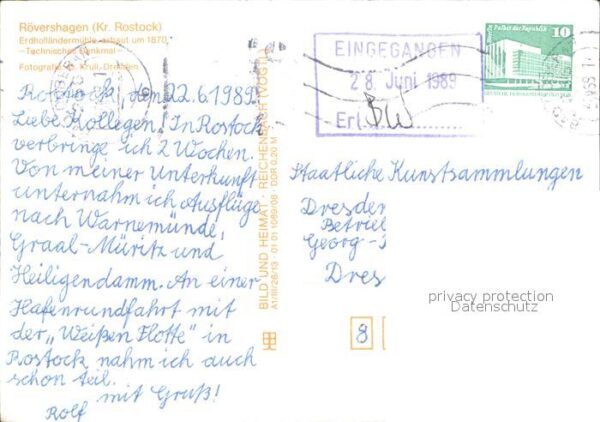 Rövershagen (Kr. Rostock)
Erdholländermühle, erbaut um 1870
—Technisches Denkmal—
Fotografie: Krull, Dresden
Rostock, den 22.6.1989
Liebe Kollegen! In Rostock
verbringe ich 2 Wochen.
Von meiner Unterkunft
unternahm ich Ausflüge
nach Warnemünde,
Graal-Müritz und
Heiligendamm. An einer
Hafenrundfahrt mit
der „Weißen Flotte" in
Rostock nahm ich auch
schon teil.
mit Gruß!
Rolf
BILD UND HEIMAT · REICHENBACH (VOGTL)
A1/III/26/13 · 01 01 1089/08 · DDR 0,20 M
EINGEGANGEN
28. Juni 1989
Erl.
BW
Palast der Republik
10
Staatliche Kunstsammlungen
Dresden
Betrie
Georg-
Dres
8
privacy protection
Datenschutz